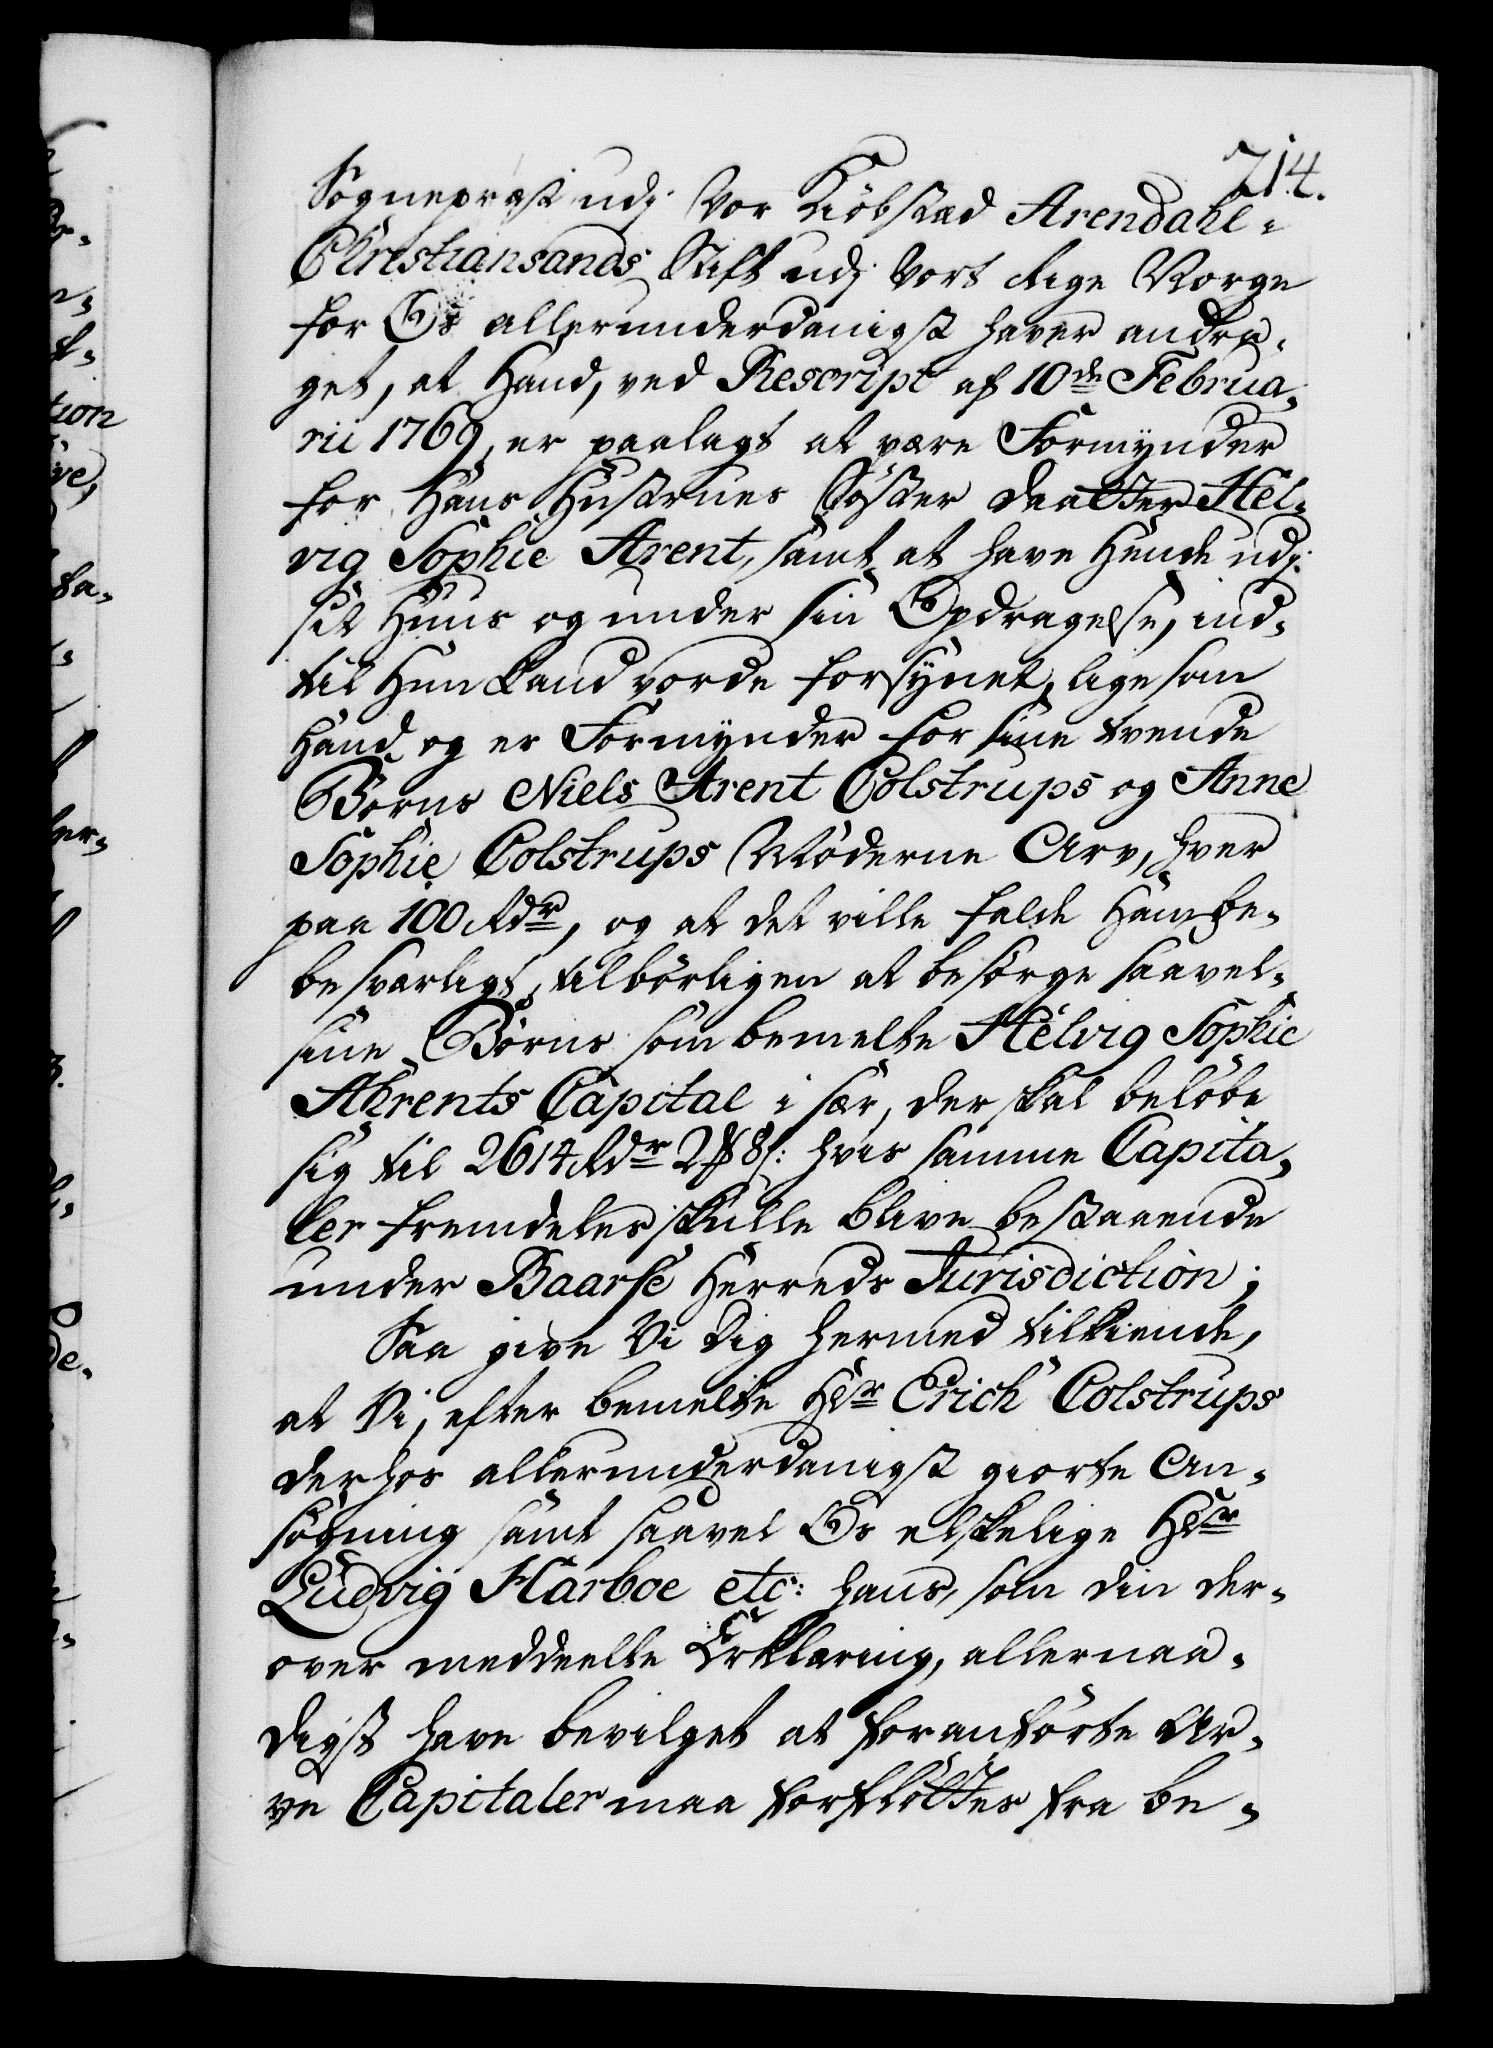 714.
Sognepræst udj Vor Kiöbstæd Arendahl i
Christiansands Stift udj Vort Rige Norge
for Os allerunderdanigst haver andra-
get, at Hand, ved Rescript af 10de Februa-
rii 1769, er paalagt at være Formynder
for Hans Hustrues Söster Daatter Hel-
vig Sophie Arent, samt at have Hende udj
sit Huus og under sin Opdragelse, ind-
til Hun kand vorde forsynet, ligesom
Hand og er Formynder for sine tvende
Börns Niels Arent Colstrups og Anne
Sophie Colstrups Möderne Arv, hver
paa 100 Rdr, og at det ville falde Ham be-
besværligt, tilbörligen at besörge saavel
sine Börns som bemelte Helvig Sophie
Ahrents Capital i sær, der skal belöbe
sig til 2614 Rdr 2 ₰ 8 s: hvis samme Capita-
ler fremdeles skulle blive bestaaende
under Baarse Herreds Jurisdiction;
Saa give Vi Dig hermed tilkiende,
at Vi, efter bemelte Hr Erich Colstrups
derhos allerunderdanigst giorte An-
sögning samt saavel Os elskelige Hr
Ludvig Harboe etc: hans, som din der-
over meddeelte Erklæring, allernaa-
digst have bevilget at foranförte Ar-
ve Capitaler maa forflöttes fra be-